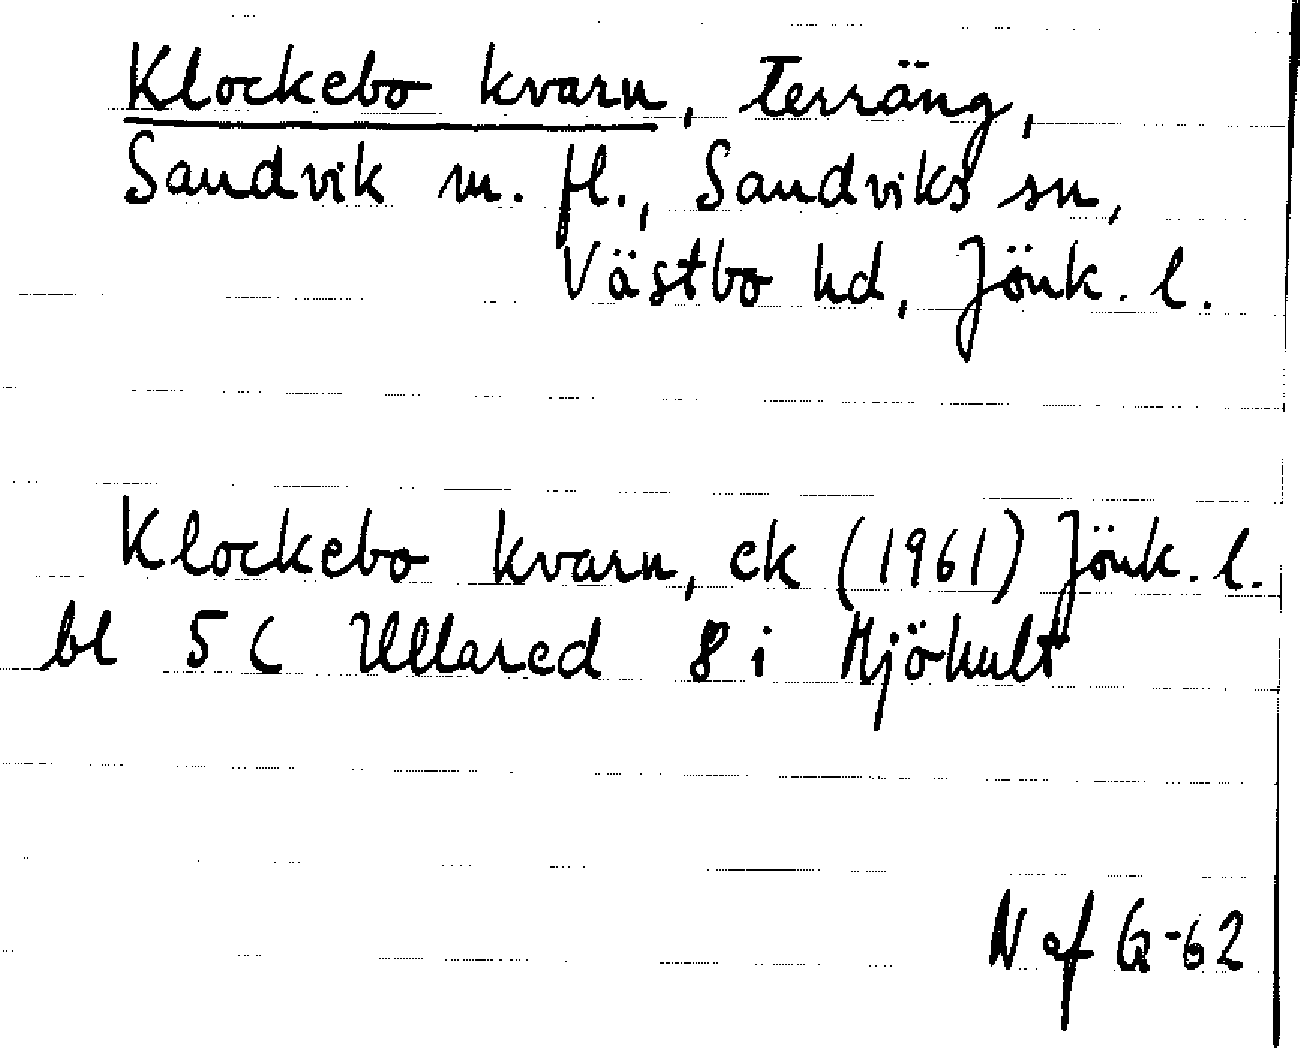 Klockebo kvarn, terräng,
Sandvik m. fl., Sandviks sn,
Västbo hd, Jönk. l.
Klockebo kvarn, ek (1961) Jönk. l.
bl 5 C Ullared 8 i Mjöhult
N af G-62